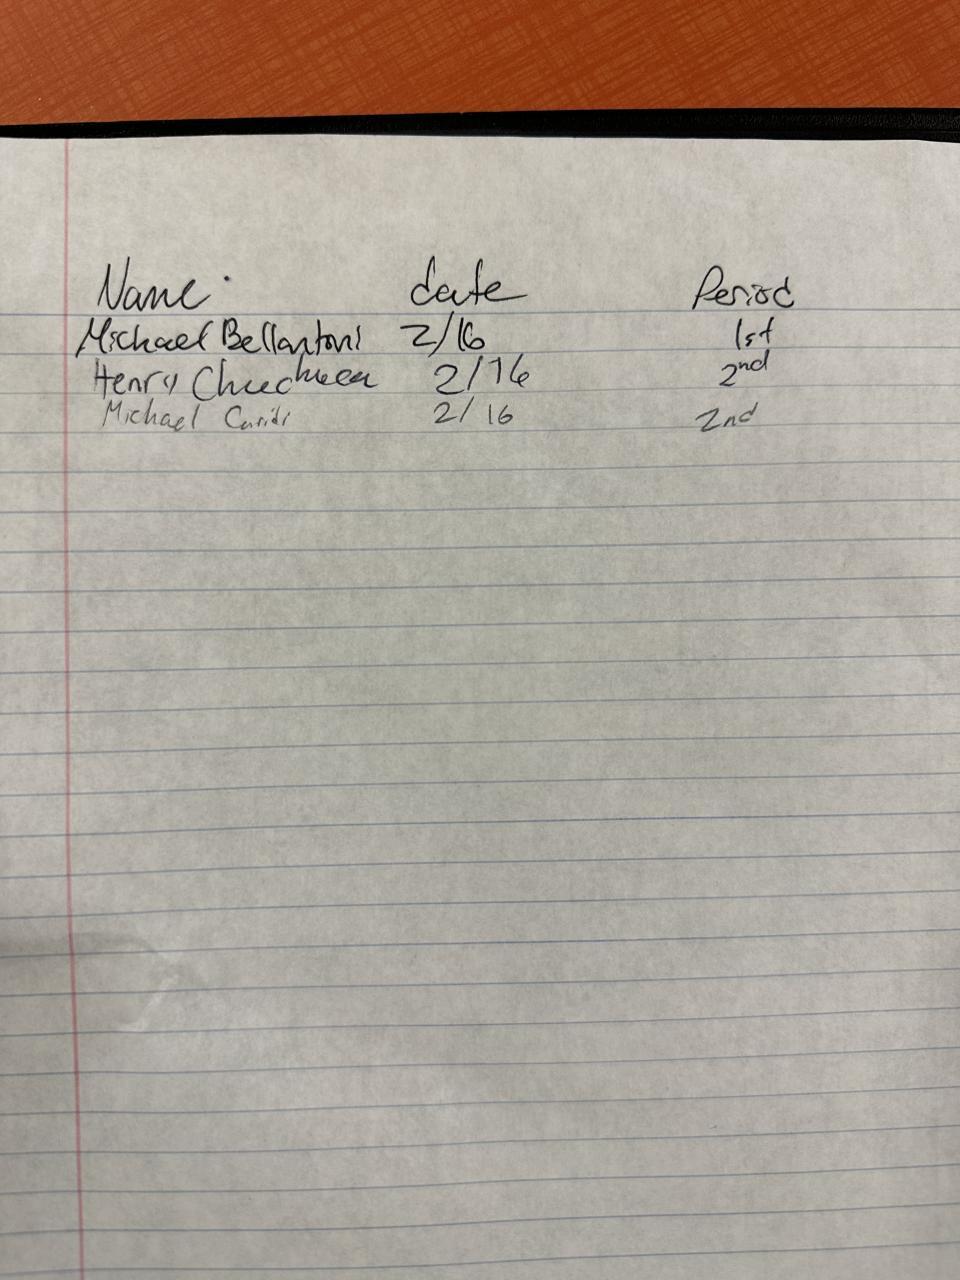 Name date Period
Michael Bellantoni 2/16 1st
Henry 2/16 2nd
Michael 2/16 2nd